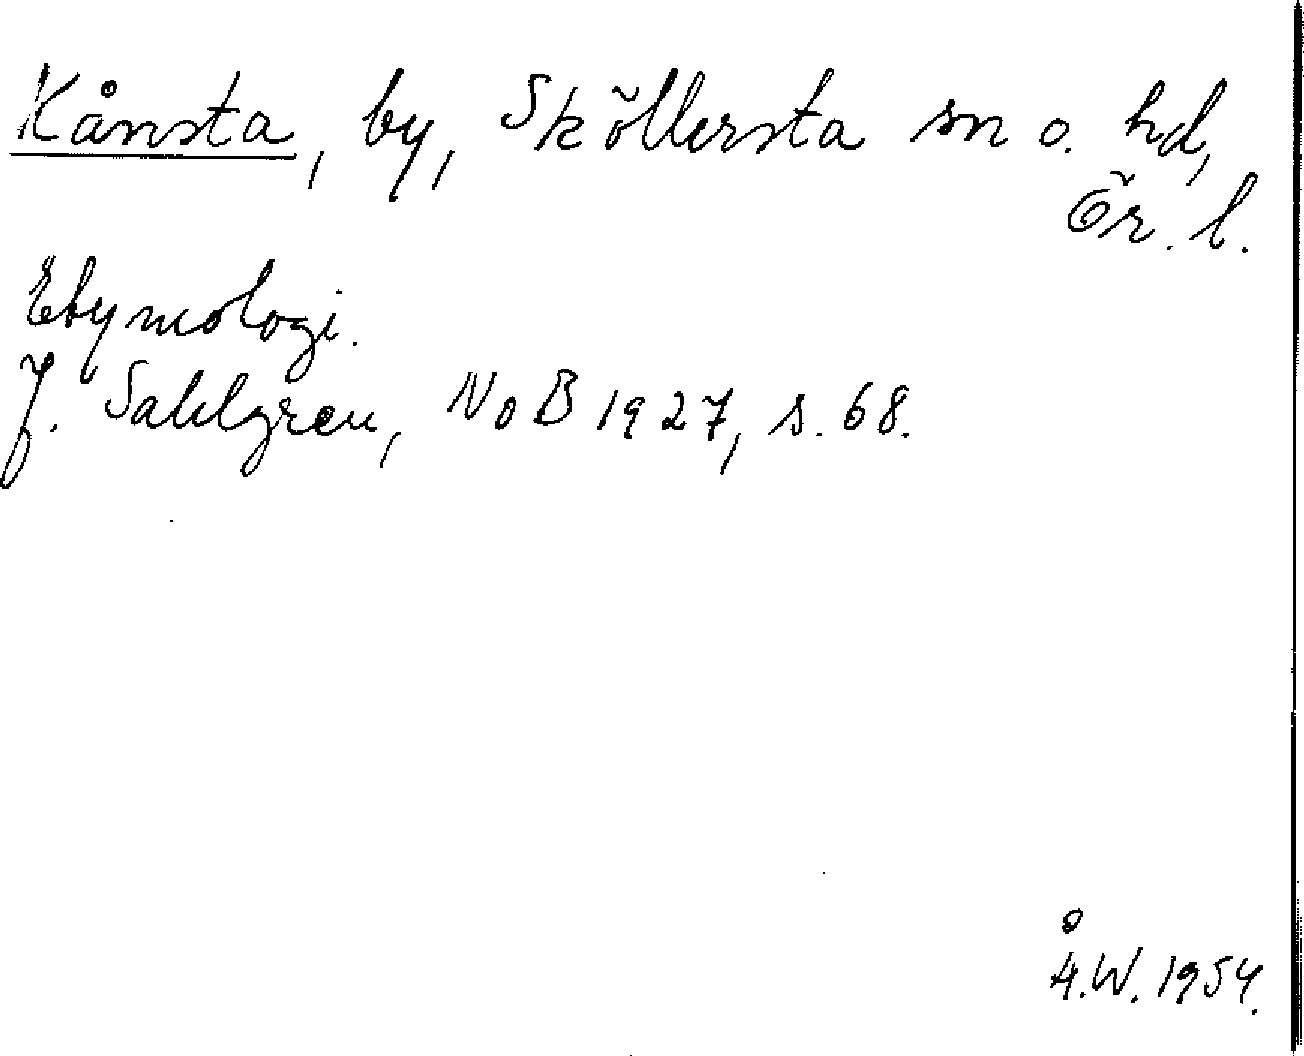 Kånsta, by, Sköllersta sn o. hd,
Ör. l.
Etymologi.
J. Sahlgren, NoB 1927, s. 68.
Å.W. 1954.